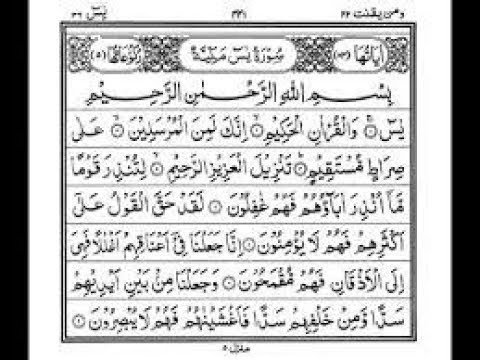 ومن يقنت ٢٢ ٤٤١ يٰسٓ ٣٦
اٰيَاتُهَا (٨٣) سُوْرَةُ يٰسٓ مَكِّيَّةٌ رُكُوْعَاتُهَا (٥)
بِسْمِ اللّٰهِ الرَّحْمٰنِ الرَّحِيْمِ
يٰسٓ ۚ وَالْقُرْاٰنِ الْحَكِيْمِ ۙ اِنَّكَ لَمِنَ الْمُرْسَلِيْنَ ۙ عَلٰى
صِرَاطٍ مُّسْتَقِيْمٍ ؕ تَنْزِيْلَ الْعَزِيْزِ الرَّحِيْمِ ۙ لِتُنْذِرَ قَوْمًا
مَّاۤ اُنْذِرَ اٰبَآؤُهُمْ فَهُمْ غٰفِلُوْنَ ۝ لَقَدْ حَقَّ الْقَوْلُ عَلٰٓى
اَكْثَرِهِمْ فَهُمْ لَا يُؤْمِنُوْنَ ۝ اِنَّا جَعَلْنَا فِيْۤ اَعْنَاقِهِمْ اَغْلٰلًا فَهِيَ
اِلَى الْاَذْقَانِ فَهُمْ مُّقْمَحُوْنَ ۝ وَجَعَلْنَا مِنْۢ بَيْنِ اَيْدِيْهِمْ
سَدًّا وَّمِنْ خَلْفِهِمْ سَدًّا فَاَغْشَيْنٰهُمْ فَهُمْ لَا يُبْصِرُوْنَ ۝
منزل ٥